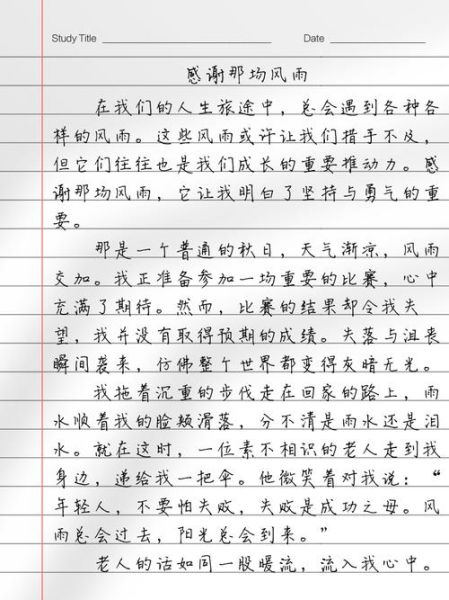 Study Title Date
感谢那场风雨
在我们的人生旅途中，总会遇到各种各
样的风雨。这些风雨或许让我们措手不及，
但它们往往也是我们成长的重要推动力。感
谢那场风雨，它让我明白了坚持与勇气的重
要。
那是一个普通的秋日，天气渐凉，风雨
交加。我正准备参加一场重要的比赛，心中
充满了期待。然而，比赛的结果却令我失
望，我并没有取得预期的成绩。失落与沮丧
瞬间袭来，仿佛整个世界都变得灰暗无光。
我拖着沉重的步伐走在回家的路上，雨
水顺着我的脸颊滑落，分不清是雨水还是泪
水。就在这时，一位素不相识的老人走到我
身边，递给我一把伞。他微笑着对我说：“
年轻人，不要怕失败，失败是成功之母。风
雨总会过去，阳光总会到来。”
老人的话如同一股暖流，流入我心中。